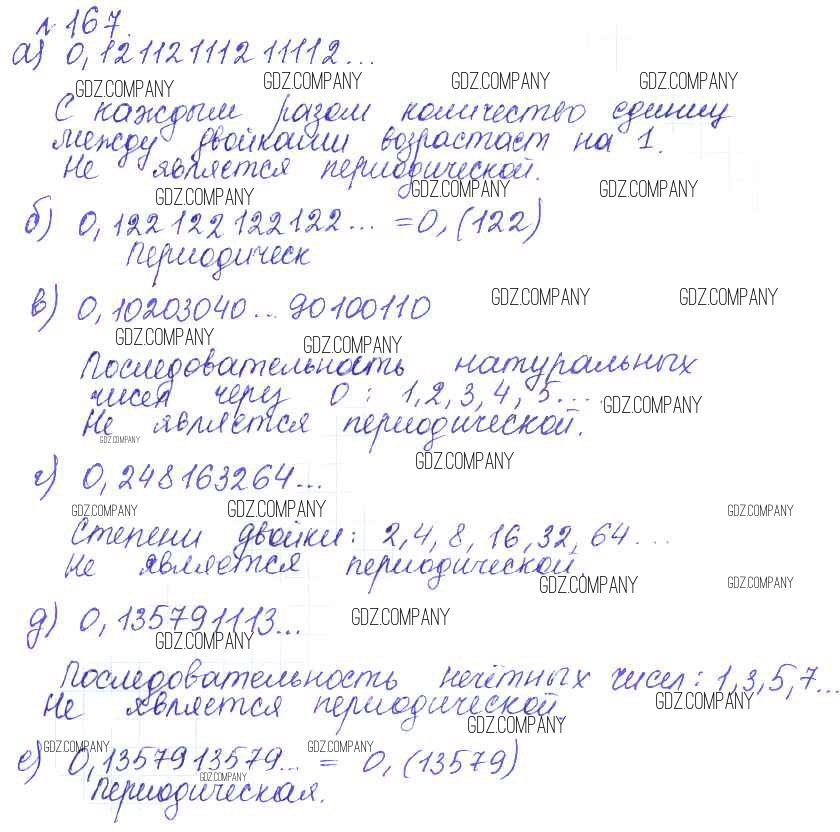 № 167.
а) 0,12112111211112...
GDZ.COMPANY GDZ.COMPANY GDZ.COMPANY GDZ.COMPANY
С каждым разом количество единиц
между двойками возрастает на 1.
Не является периодической.
GDZ.COMPANY GDZ.COMPANY GDZ.COMPANY
б) 0,122122122122... = 0,(122)
Периодическ
в) 0,10203040...90100110
GDZ.COMPANY GDZ.COMPANY
GDZ.COMPANY GDZ.COMPANY
Последовательность натуральных
чисел через 0: 1,2,3,4,5....
GDZ.COMPANY
Не является периодической.
GDZ.COMPANY
GDZ.COMPANY
г) 0,248163264...
GDZ.COMPANY GDZ.COMPANY GDZ.COMPANY
Степени двойки: 2,4,8,16,32,64...
Не является периодической.
GDZ.COMPANY GDZ.COMPANY
д) 0,135791113...
GDZ.COMPANY GDZ.COMPANY
Последовательность нечётных чисел: 1,3,5,7...
GDZ.COMPANY
Не является периодической.
GDZ.COMPANY
GDZ.COMPANY GDZ.COMPANY
е) 0,1357913579... = 0,(13579)
GDZ.COMPANY
Периодическая.